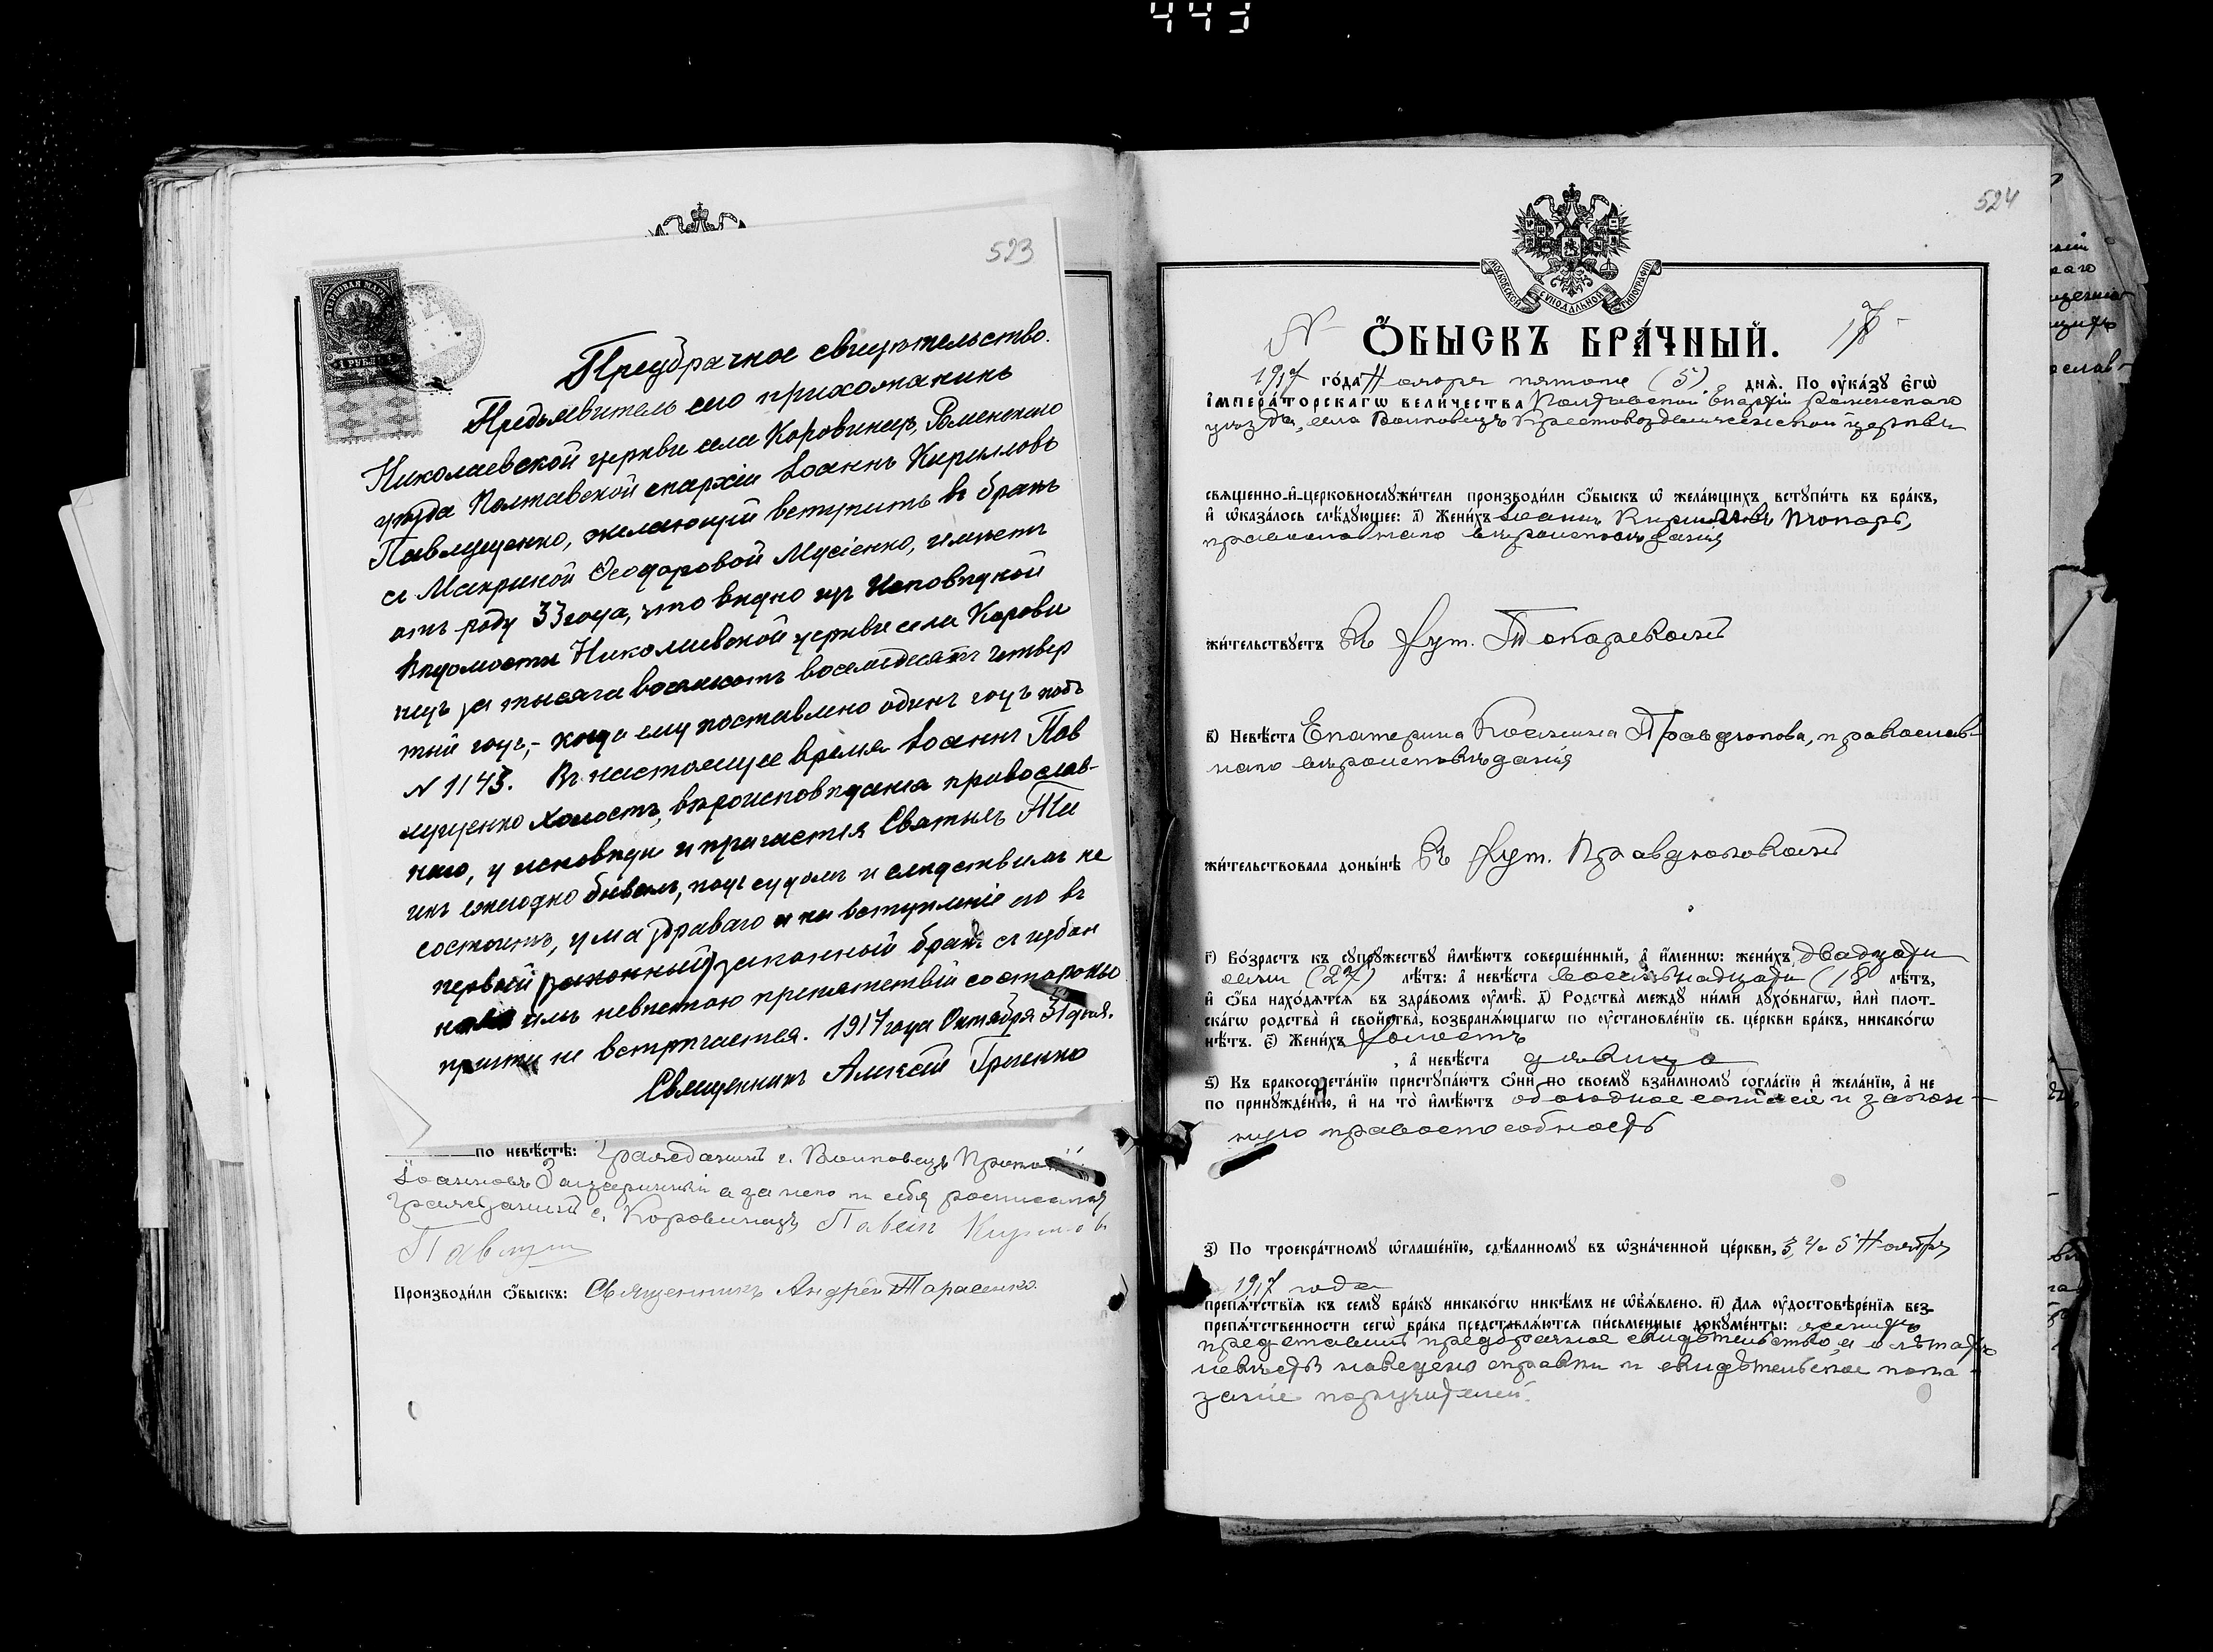 443
523
ГЕРБОВАЯ МАРКА
1 РУБЛЬ
Предбрачное свидѣтельство.
Предъявитель сего прихожанинъ
Николаевской церкви села Коровинецъ, Роменскаго
уѣзда Полтавской епархіи Іоаннъ Кирилловъ
Павлущенко, желающій вступить въ бракъ
съ Макриной Ѳеодоровой Мусіенко, имѣетъ
отъ роду 33 года, что видно изъ Исповѣдной
вѣдомости Николаевской церкви села Корови
нецъ за тысяча восемьсотъ восемьдесятъ четвер
тый годъ,- когда ему поставлено одинъ годъ подъ
№ 1143. Въ настоящее время Іоаннъ Пав
лущенко холостъ, вѣроисповѣданія православ-
наго, у исповѣди и причастія Святыхъ Та
инъ ежегодно бывалъ, подъ судомъ и слѣдствіемъ не
состоитъ, ума здраваго и на вступленіе его въ
первый (законный) законный бракъ съ избран
имъ невѣстою препятствій со стороны
причта не встрѣчается. 1917 года Октября 31 дня.
Священникъ Алексій Гриенко
по невѣстѣ: Гражданинъ с. Волковецъ
Іоанновъ а за него и себя росписался
гражданинъ с. Коровинецъ Павелъ
Производи́ли ѻ҆́быскъ: Священникъ Андрей Тарасенко.
524
МОСКОВСКОЙ СѴНОДАЛЬНОЙ ТИПОГРАФІИ
№ 17
Ѻ҆́БЫСКЪ БРА́ЧНЫЙ.
1917 го́да Ноября пятого (5) днѧ̀. По ᲂу҆ка́зꙋ є҆гѡ̀
І҆МПЕРА́ТОРСКАГѠ ВЕЛИ́ЧЕСТВА Полтавской Епархіи Роменскаго
уѣзда, села Волковецъ Крестовоздвиженской церкви
свѧщенно-и҆-церковнослꙋжи́тели произвоdи́ли ѻ҆́быскъ ѡ҆ жела́ющихъ встꙋпи́ть въ бра́къ,
и҆ ѡ҆каза́лось слѣ́дꙋющее: а҃) Жени́хъ Іоаннъ Кирилловъ Токарь,
православнаго вѣроисповѣданія
жи́тельствꙋетъ Въ хут. Токаревомъ
в҃) Невѣ́ста Екатерина Косьмина Правдюкова, православ-
наго вѣроисповѣданія
жи́тельствовала доны́нѣ Въ хут. Правдюковомъ
г҃) Во́зрастъ къ сꙋпрꙋ́жествꙋ и҆мѣ́ютъ соверше́нный, а҆ и҆́меннѡ: жени́хъ двадцати
семи (27) лѣ́тъ: а҆ невѣ́ста восемьнадцати (18 лѣ́тъ,
и҆ ѻ҆́ба нахо́дѧтсѧ въ здра́вомъ ᲂу҆мѣ̀. д҃) Родства̀ междꙋ ни́ми дꙋхо́внагѡ, и҆лѝ плот-
ска́гѡ родства̀ и҆ сво́йства̀, возбранѧ́ющагѡ по ᲂу҆становле́нїю св. це́ркви бра́къ, никако́гѡ
нѣ́тъ. є҃) Жени́хъ холостъ
, а҆ невѣ́ста дѣвица
ѕ҃) Къ бракосочета́нїю пристꙋпа́ютъ ѻ҆нѝ по своемꙋ̀ взаи́мномꙋ согла́сїю и҆ жела́нїю, а҆ не
по принꙋжде́нїю, и҆ на то̀ и҆мѣ́ютъ обоюдное согласіе и закон-
ную правоспособность
з҃) По троекра́тномꙋ ѡ҆глаше́нїю, сдѣ́ланномꙋ въ ѡ҆зна́ченной це́ркви, 3, 4 и 5 Ноября
1917 года
препѧ́тствїѧ къ семꙋ̀ бра́кꙋ никако́гѡ никѣ́мъ не ѡ҆б̾ѧ́влено. и҃) Длѧ ᲂу҆достовѣре́нїѧ без-
препѧ́тственности сегѡ̀ бра́ка представлѧ́ютсѧ пи́сьменные докꙋме́нты: женихъ
представилъ предбрачное свидѣтельство, а о лѣтахъ
невѣсты наведено справки и свидѣтельское пока-
заніе поручителей.